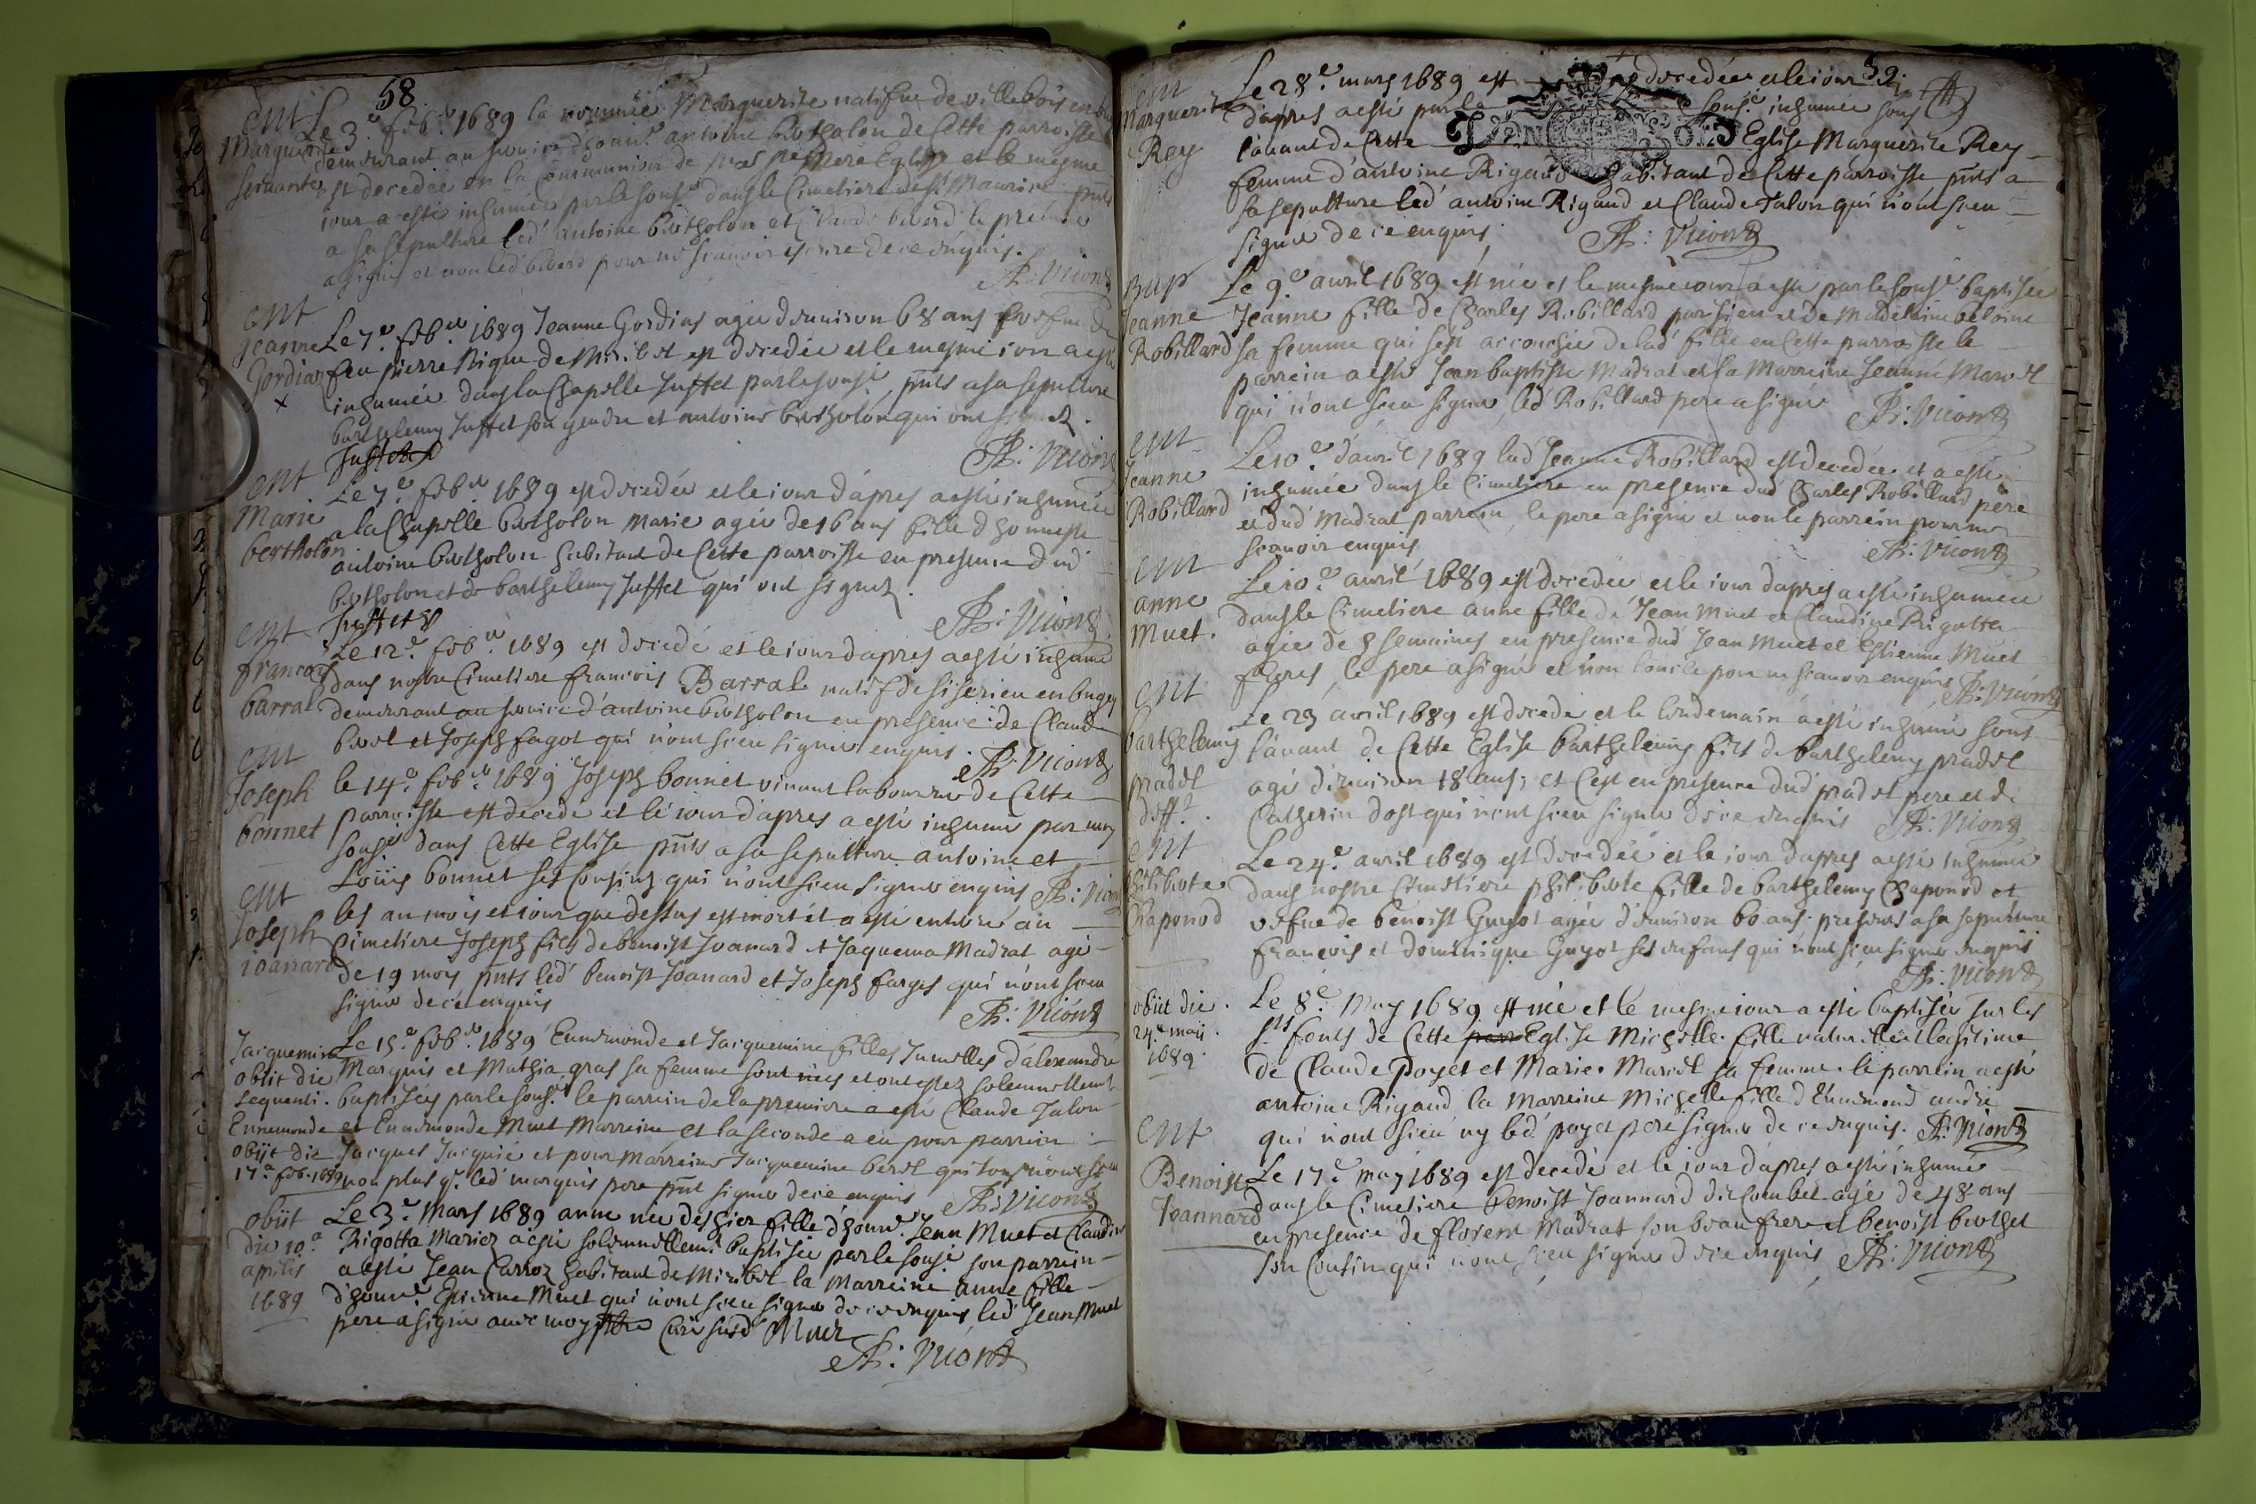 58
ent
Marguerite
servante
Le 3.e feb.er 1689 la nommée Marguerite natifve de villebois en
demeurant au service d'hon. antoine bertholon de Cette parroisse
est decedée en la Communion de nre Ste mere Eglise et le mesme
iour a esté inhumée par le sousé dans le Cimetiere de St Maurice pnts
a sa sepulture led antoine bertholon et Claude le premier
a signé et non led pour ne scauoir escrire de ce enquis.
Th: Vicond
ent
Jeanne
Gordias
x
Le 7.e feb.er 1689 Jeanne Gordias agée d'enuiron 68 ans vefue de
feu pierre Nique de Miribel est decedée et le mesme iour a esté
inhumée dans la Chapelle Juffet par le sousé, pnts a sa sepulture
barthelemy Juffet son gendre et antoine bertholon qui ont signez.
Juffet
Th: Vicond
ent
Marie
bertholon
Le 7.e feb.er 1689 est decedée et le iour d'apres a esté inhumée
a la Chapelle bertholon Marie agée de 16 ans fille d'honneste
antoine bertholon habitant de Cette parroisse en presence dud
bertholon et de barthelemy Juffet qui ont signez.
Juffet
Th: Vicond
ent
francois
barral
Le 12.e feb.er 1689 est decedé et le iour d'apres a esté inhumé
dans nostre Cimetiere francois Barral natif de siserieu en bugey
demeurant au seruice d'antoine bertholon en presence de Claude
et Joseph fagot qui n'ont sceu signer enquis. Th: Vicond
ent
Joseph
bonnet
le 14.e feb.er 1689 Joseph bonnet viuant laboureur de Cette
parroisse est decedé et le iour d'apres a esté inhumé par moy
sousé dans Cette Eglise pnts a sa sepulture antoine et
Loüis bonnet ses Cousins qui n'ont sceu signer enquis Th: Vicond
ent
Joseph
ioannard
les an mois et iour que dessus est mort et a esté enterré au
Cimetiere Joseph fils de benoist Joannard et Jaquema Madrat agé
de 19 moys pnts led benoist Joannard et Joseph farges qui n'ont sceu
signer de ce enquis
Th: Vicond
Jacquemine
obiit die
sequenti.
Ennemonde
obijt die
17.a feb. 1689
Le 15.e feb.er 1689 Ennemonde et Jacquemine filles Jumelles d'alexandre
Marquis et Mathia gras sa femme sont nées et ont estez solemnellement
baptisées par le sousé. le parrein de la premiere a esté Claude Talon
et Ennemonde Muet Marreine et la seconde a eu pour parrein
Jacques Jacquié et pour Marreine Jacquemine berol qui tous n'ont sceu
non plus q. led marquis pere pnt signer de ce enquis Th: Vicond
obiit
die 10.a
aprilis
1689
Le 3.e Mars 1689 anne née d'hier fille d'honn.e Jean Muet et Claudine
Rigotta Mariez a esté solemnellemt. baptisée par le sousé son parrein
a esté Jean Carroz habitant de Miribel la Marreine anne fille
d'honn.e Estienne Muet qui n'ont sceu signer de ce enquis led Jean Muet
pere a signé auec moy Curé susd Muet
Th: Vicond
59.
ent
Marguerite
Rey
Le 28.e mars 1689 est decedée et le iour
d'apres a esté par le sousé inhumée sous
l'auant de Cette Eglise Marguerite Rey
LYON
femme d'antoine Rigaud habitant de Cette parroisse pnts a
sa sepulture led antoine Rigaud et Claude Talon qui n'ont sceu
signer de ce enquis. Th: Vicond
Bap
Jeanne
Robillard
Le 9.e auril 1689 est née et le mesme iour a esté par le sousé baptisée
Jeanne fille de Charles Robillard parisien et de Madeleine
sa femme qui s'est accouchée de lad fille en Cette parroisse le
parrein a esté Jean baptiste Madrat et la Marreine Jeanne Marol
qui n'ont sceu signer, led Robillard pere a signé Th: Vicond
ent
Jeanne
Robillard
Le 10.e d'auril 1689 lad Jeanne Robillard est decedée et a esté
inhumée dans le Cimetiere en presence dud Charles Robillard pere
et dud Madrat parrein, le pere a signé et non le parrein pour ne
scauoir enquis
Th: Vicond
ent
anne
Muet.
Le 10.e auril 1689 est decedée et le iour d'apres a esté inhumée
dans le Cimetiere anne fille de Jean Muet et Claudine Rigotta
agée de 8 semaines en presence dud Jean Muet et Estienne Muet
freres, le pere a signé et non l'oncle pour ne scauoir enquis
Th: Vicond
ent
barthelemy
pradel
Le 23 auril 1689 est decedé et le lendemain a esté inhumé sous
l'auant de Cette Eglise barthelemy fils de barthelemy pradel
agé d'enuiron 18 ans; et C'est en presence dud pradel pere et de
Catherin dost qui n'ont sceu signer de ce enquis Th: Vicond
ent
philiberte
Chaponod
Le 24.e auril 1689 est decedée et le iour d'apres a esté inhumée
dans nostre Cimetiere philiberte fille de barthelemy Chaponod et
vefue de benoist Guyot agée d'enuiron 60 ans. presens a sa sepulture
francois et dominique Guyot ses enfans qui n'ont sceu signer enquis
Th: Vicond
obiit die
24.a maii
1689.
Le 8.e May 1689 est née et le mesme iour a esté baptisée sur les
sts fonts de Cette Eglise Michelle fille naturelle et legitime
de Claude Poyet et Marie Marol sa femme. le parrein a esté
antoine Rigaud la Marreine Michelle fille d'Ennemond andré
qui n'ont sceu ny led poyet pere signer de ce enquis. Th: Vicond
ent
Benoist
Joannard
Le 17.e may 1689 est decedé et le iour d'apres a esté inhumé
dans le Cimetiere benoist Joannard dit Combet agé de 48 ans
en presence de florent Madrat son beau frere et benoist berthet
son Cousin qui n'ont sceu signer de ce enquis Th: Vicond